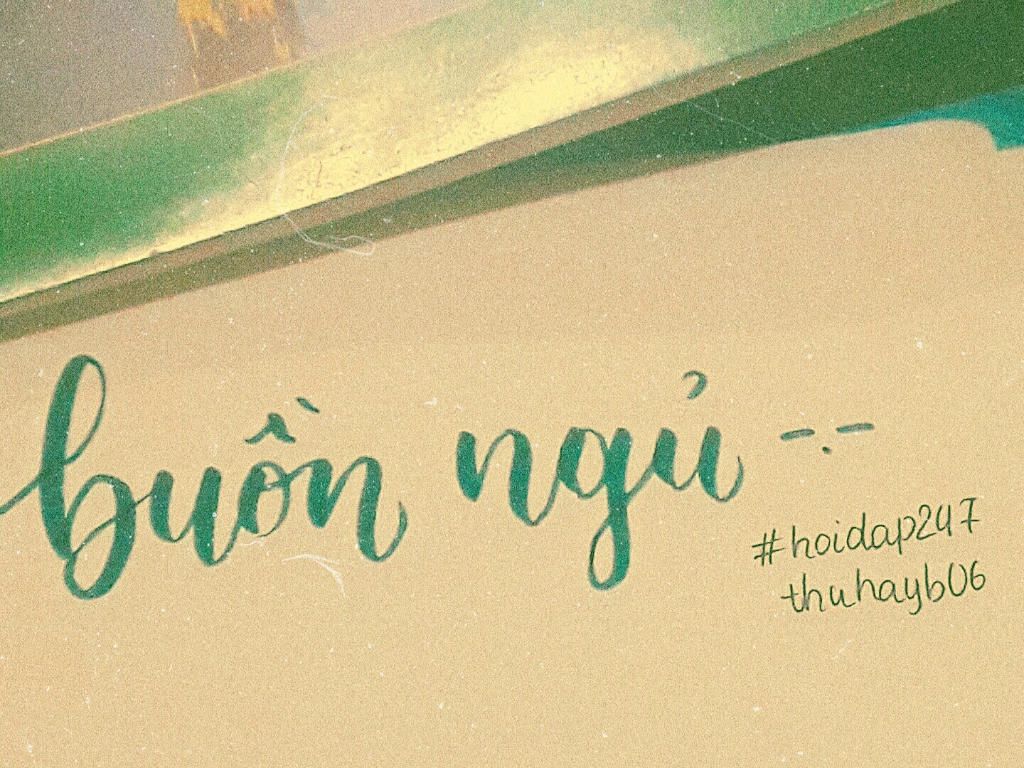 buồn ngủ -.-
#hoidap247
thuhayb06